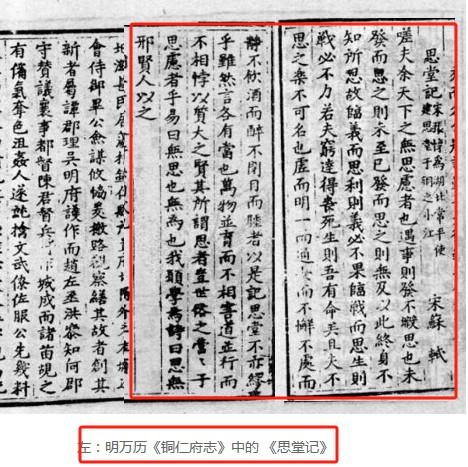 思堂記
宋
為湖北常平使
建思堂于
之小江
宋蘇軾
嗟夫余天下之無思慮者也遇事則發不暇思也未
發而思之則未至已發而思之則無及以此終身不
知所思故臨義而思利則義必不果臨戰而思生則
戰必不力若夫窮達得喪死生則吾有命矣且夫不
思之樂不可名也虛而明一而通安而不懈不處而
靜不飲酒而醉不閉目而睡者以是記思堂不亦繆
乎雖然言各有當也萬物並育而不相害道並行而
不相悖以質夫之賢其所謂思者豈世俗之營營于
思慮者乎易曰無思也無為也我願學焉詩曰思無
邪賢人以之
會侍郎畢公謀攸協爰撤路察緒其故者創其
新者蜀譚郡理吳明府謨作而趙左丞洪泰知何郡
守贊議襄事郡督陳君督兵城成而諸苗覘之
有備氣奪色沮人遂文武僚佐服公先幾料
左：明万历《铜仁府志》中的 《思堂记》